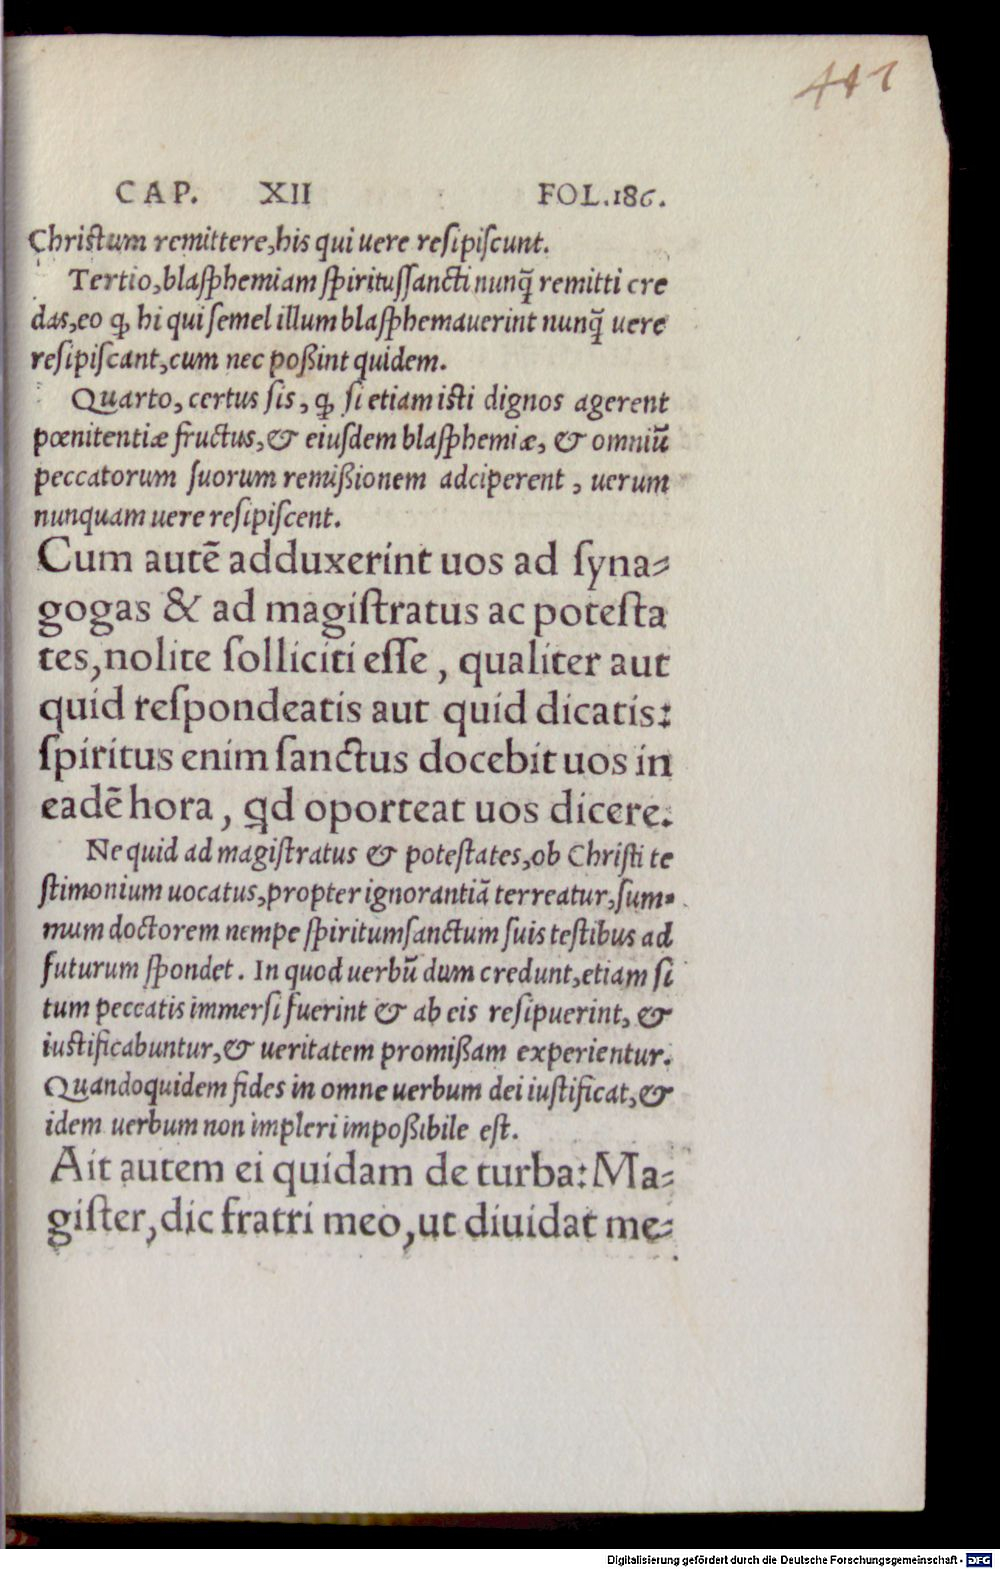 417
CAP. XII FOL.186.
Chriſtum remittere,his qui uere reſipiſcunt.
Tertio,blaſphemiam ſpirituſſancti nunq̃ remitti cre
das,eo ꝙ hi qui ſemel illum blaſphemauerint nunq̃ uere
reſipiſcant,cum nec poßint quidem.
Quarto, certus ſis, ꝙ ſi etiam iſti dignos agerent
pœnitentiæ fructus,& eiuſdem blaſphemiæ, & omniū
peccatorum ſuorum remißionem adciperent, uerum
nunquam uere reſipiſcent.
Cum autē adduxerint uos ad ſyna⸗
gogas & ad magiſtratus ac poteſta
tes,nolite ſolliciti eſſe, qualiter aut
quid reſpondeatis aut quid dicatis:
ſpiritus enim ſanctus docebit uos in
eadē hora, qd oporteat uos dicere.
Ne quid ad magiſtratus & poteſtates,ob Chriſti te
ſtimonium uocatus,propter ignorantiā terreatur,ſum⸗
mum doctorem nempe ſpiritumſanctum ſuis teſtibus ad
futurum ſpondet. In quod uerbū dum credunt,etiam ſi
tum peccatis immerſi fuerint & ab eis reſipuerint, &
iuſtificabuntur,& ueritatem promißam experientur.
Quandoquidem fides in omne uerbum dei iuſtificat,&
idem uerbum non impleri impoßibile eſt.
Ait autem ei quidam de turba: Ma⸗
giſter,dic fratri meo,ut diuidat me⸗
Digitalisierung gefördert durch die Deutsche Forschungsgemeinschaft - DFG